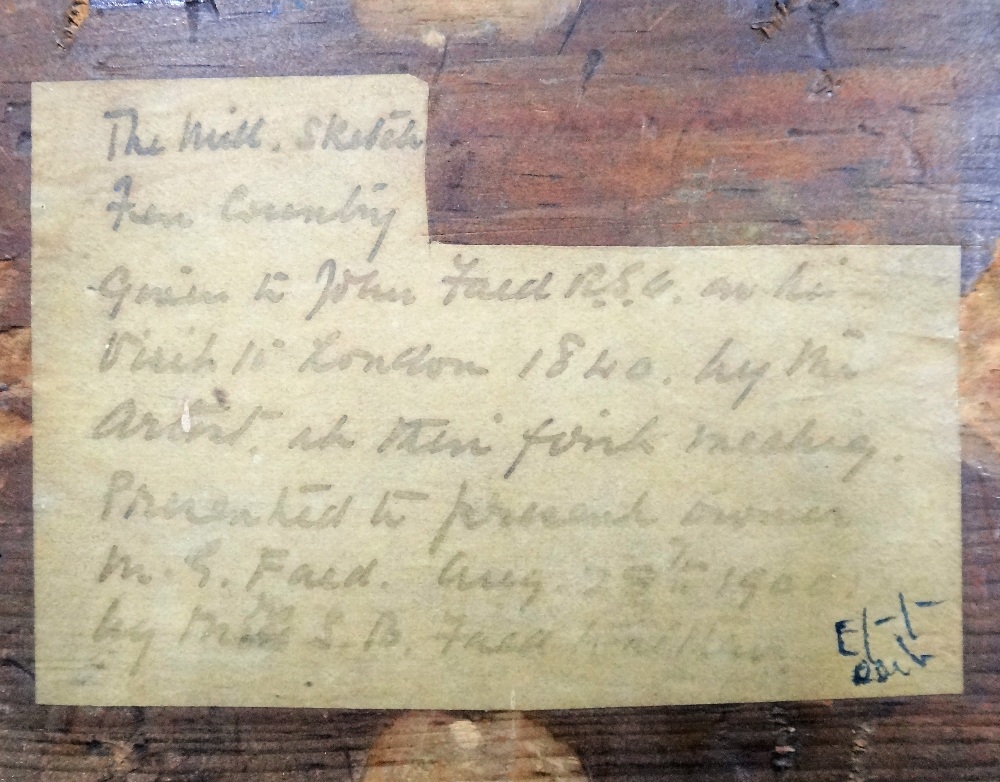 The Mill. Sketch
Fen Country
Given to John Faed R.S.A. on his
Visit to London 1840. by the
Artist. at their first meeting.
Presented to present owner
M. G. Faed. Aug. 1900.
by Miss S. B. Faed
E/-/-